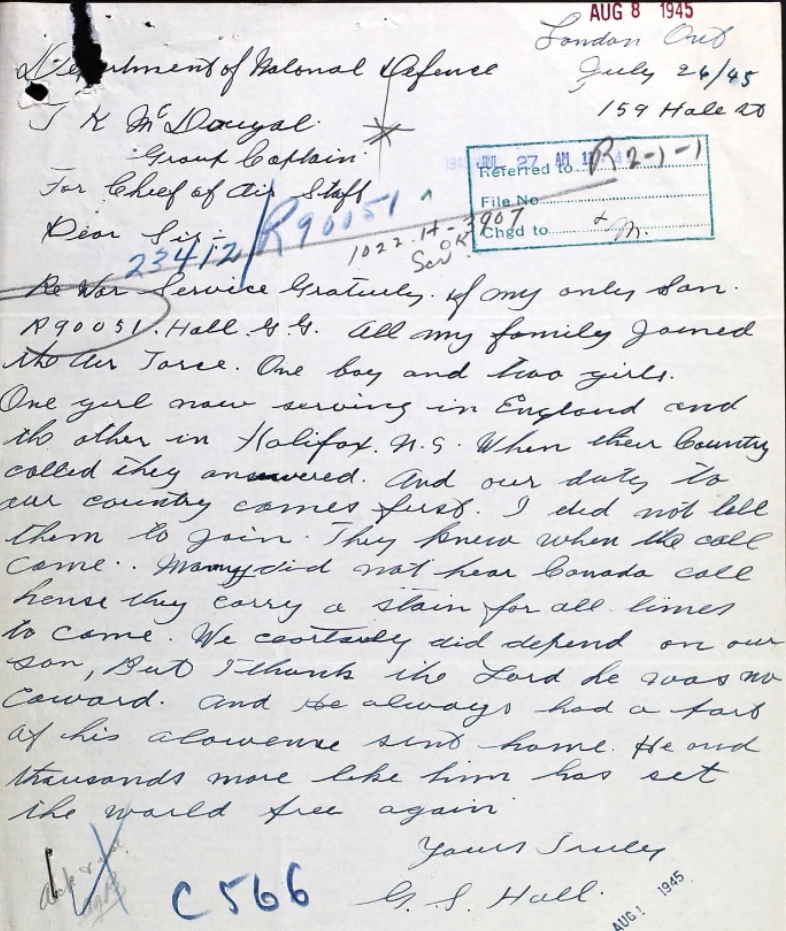 AUG 8 1945
London Ont
Department of National Defence
July 26/45
159 Hale St
T K McDougal
Group Captain
For Chief of Air Staff
JUL 27 AM
Referred to R 2-1-1
File No.
Chgd to
Dear Sir:-
23412/R90051
1022-H-3907
Re War Service Gratuity. of my only Son.
R90051. Hall. G.G. All my family joined
the Air Force. One boy and two girls.
One girl now serving in England and
the other in Halifax. N.S. When their Country
called they answered. And our duty to
our country comes first. I did not tell
them to join. They knew when the call
come.. Many did not hear Canada call
hense they carry a stain for all times
to come. We certainly did depend on our
son, But I thank the Lord he was no
Coward. And He always had a part
of his alowense sent home. He and
thousands more like him has set
the world free again
Yours Truley
G. S. Hall.
C566
AUG 1 1945